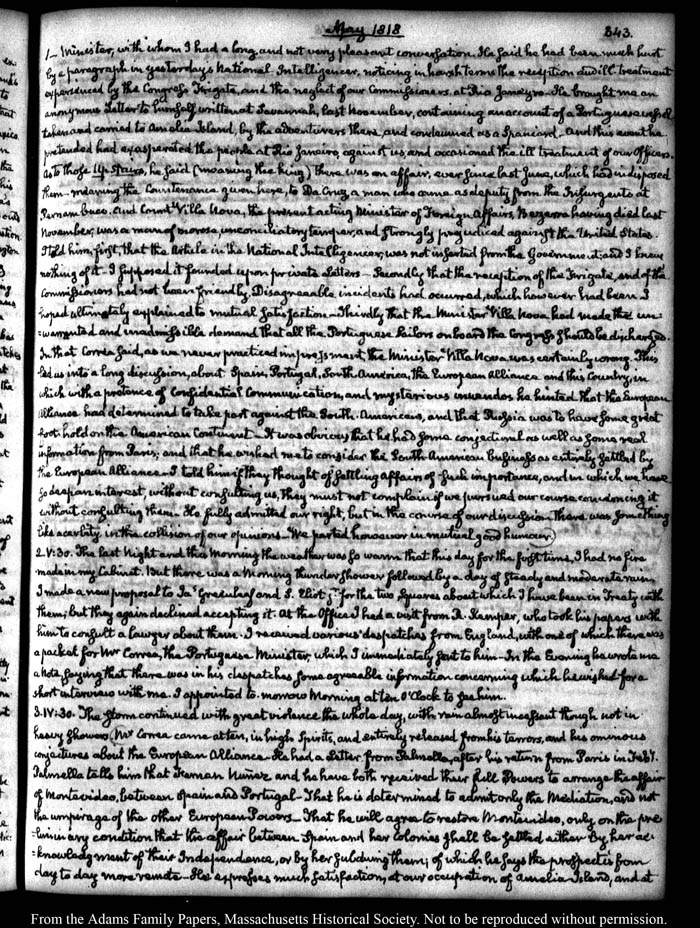 May 1818
343.
1— Minister, with whom I had a long, and not very pleasant conversation. He said he had been much hurt
by a paragraph in yesterday's National Intelligencer, noticing in harsh terms the reception and ill treatment
experienced by the Congress Frigate, and the neglect of our Commissioners, at Rio Janeyro. He brought me an
anonymous Letter to himself written at Savannah, last November, containing an account of a Portuguese vessel
taken and carried to Amelia Island, by the adventurers there, and condemned as a Spaniard. And this event he
pretended had exasperated the people at Rio Janeiro, against us and occasioned the ill treatment of our officers.
As to those up stairs, he said (meaning the king) there was an affair, ever since last June, which had indisposed
them— meaning the Countenance given here, to Da Cruz a man who came as deputy from the Insurgents at
Pernambuco. And Count Villa Nova, the present acting Minister of Foreign Affairs, Bezerra having died last
November, was a man of morose, unconciliatory temper, and strongly prejudiced against the United States.
I told him, first, that the Article in the National Intelligencer, was not inserted from the Government; and I knew
nothing of it. I supposed it founded upon private Letters— Secondly that the reception of the Frigate, and of the
Commissioners had not been friendly. Disagreeable incidents had occurred, which however had been I
hoped ultimately explained to mutual satisfaction— Thirdly that the Minister Villa Nova had made the un-
=warranted and inadmissible demand that all the Portuguese sailors on board the Congress should be discharged.
In that Correa said, as we never practiced impressment, the Minister Villa Nova was certainly wrong. This
led us into a long discussion, about Spain, Portugal, South America, the European Alliance and this Country, in
which with a pretence of Confidential Communication, and mysterious inuendos he hinted that the European
Alliance had determined to take part against the South-Americans, and that Russia was to have some great
foot hold on the American Continent— It was obvious that he had some conjectural as well as some real
information from Paris; and that he wished me to consider the South American business as entirely settled by
the European Alliance— I told him if they thought of settling affairs of such importance, and in which we have
so deep an interest, without consulting us, they must not complain if we pursued our course concerning it
without consulting them— He fully admitted our right, but in the course of our discussion there was something
like acerbity, in the collision of our opinions. We parted however in mutual good humour.
2. V:30. The last Night and this Morning the weather was so warm that this day for the first time, I had no fire
made in my Cabinet. But there was a Morning thunder shower followed by a day of steady and moderate rain
I made a new proposal to Ja's Greenleaf and S. Eliot jr. for the two Squares about which I have been in Treaty with
them; but they again declined accepting it. At the Office I had a visit from R. Kemper, who took his papers with
him to consult a Lawyer about them. I received various despatches from England, with one of which there was
a packet for Mr Correa, the Portuguese Minister, which I immediately sent to him— In the Evening he wrote me
a Note, saying that there was in his despatches some agreeable information concerning which he wished for a
short interview with me. I appointed to-morrow Morning at ten O'Clock to see him.
3. IV:30. The storm continued with great violence the whole day, with rain almost incessant though not in
heavy showers. Mr Correa came at ten, in high Spirits, and entirely released from his terrors, and his ominous
conjectures about the European Alliance. He had a Letter from Palmella, after his return from Paris in Feby.
Palmella tells him that Fernan Nunez and he have both received their full Powers to arrange the affair
of Montevideo, between Spain and Portugal— That he is determined to admit only the Mediation, and not
the umpirage of the other European Powers— That he will agree to restore Montevideo, only on the pre
=liminary condition that the affair between Spain and her Colonies shall be settled either by her ac-
=knowledgment of their Independence, or by her subduing them; of which he says the prospect is from
day to day more remote— He expresses much satisfaction, at our occupation of Amelia Island, and at
From the Adams Family Papers, Massachusetts Historical Society. Not to be reproduced without permission.